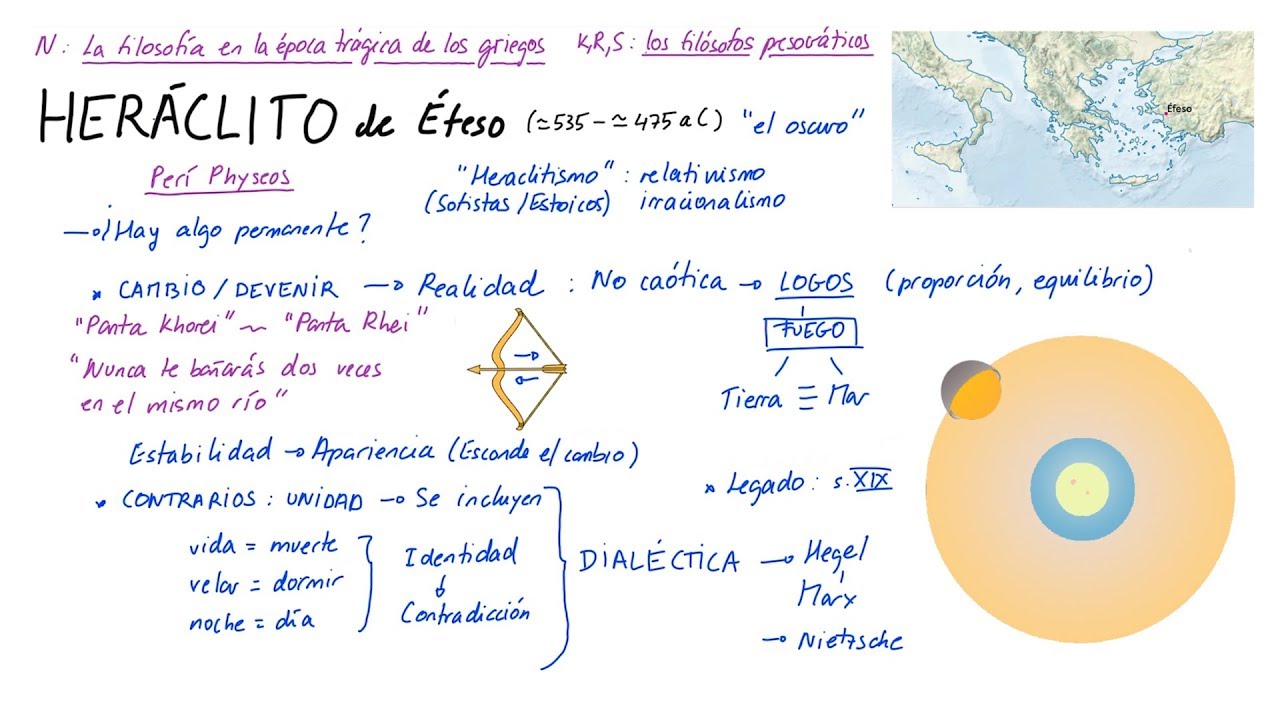 N: La filosofía en la época trágica de los griegos K,R,S: los filósofos presocráticos
HERÁCLITO de Éfeso (≃535-≃475 a C) "el oscuro"
Éfeso
Perí Physeos
"Heraclitismo": relativismo
(Sofistas/Estoicos) irracionalismo
→ ¿Hay algo permanente?
* CAMBIO/DEVENIR → Realidad: No caótica → LOGOS (proporción, equilibrio)
"Panta Khorei" ~ "Panta Rhei"
FUEGO
Tierra ≡ Mar
"Nunca te bañarás dos veces
en el mismo río"
Estabilidad → Apariencia (Esconde el cambio)
* Legado: s. XIX
* CONTRARIOS: UNIDAD → Se incluyen
vida = muerte
velar = dormir
noche = día
Identidad
↓
Contradicción
DIALÉCTICA → Hegel
Marx
→ Nietzsche